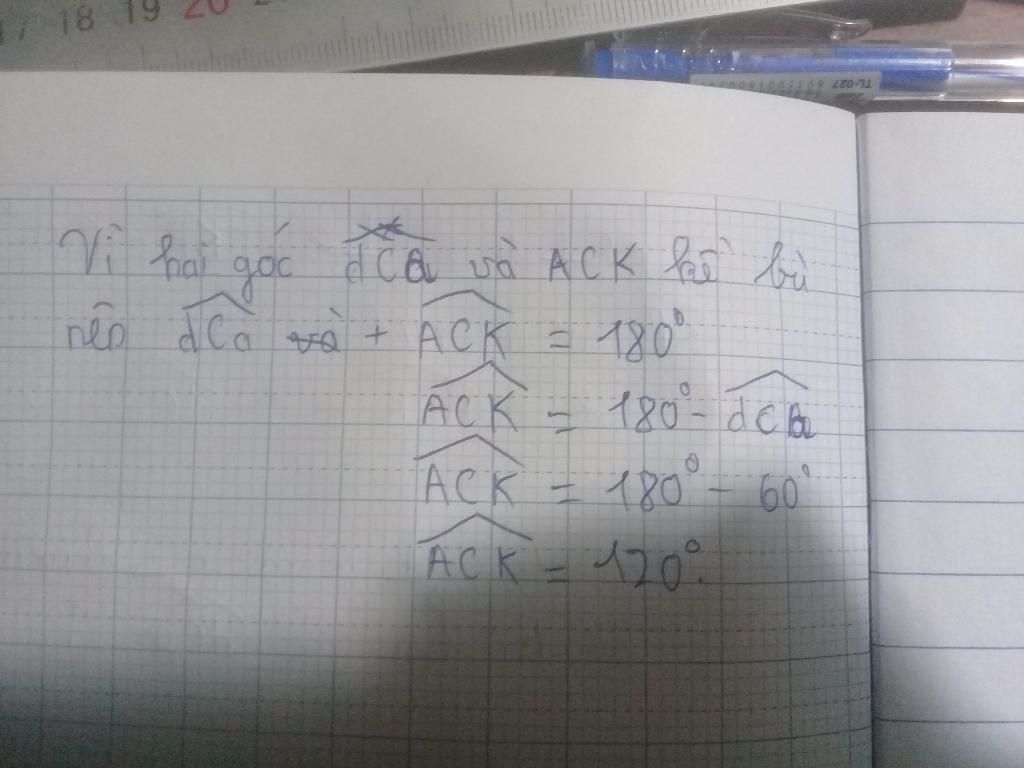 17 18 19 20
TL-027
Vì hai góc dCa và ACK kề bù
nên dCa + ACK = 180°
ACK = 180° - dCa
ACK = 180° - 60°
ACK = 120°.